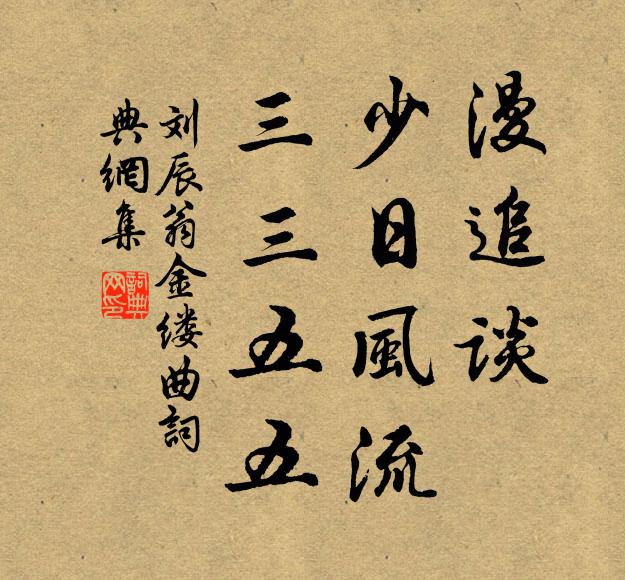 漫追谈
少日風流
三三五五
刘辰翁金缕曲詞
典網集
詞典
网印